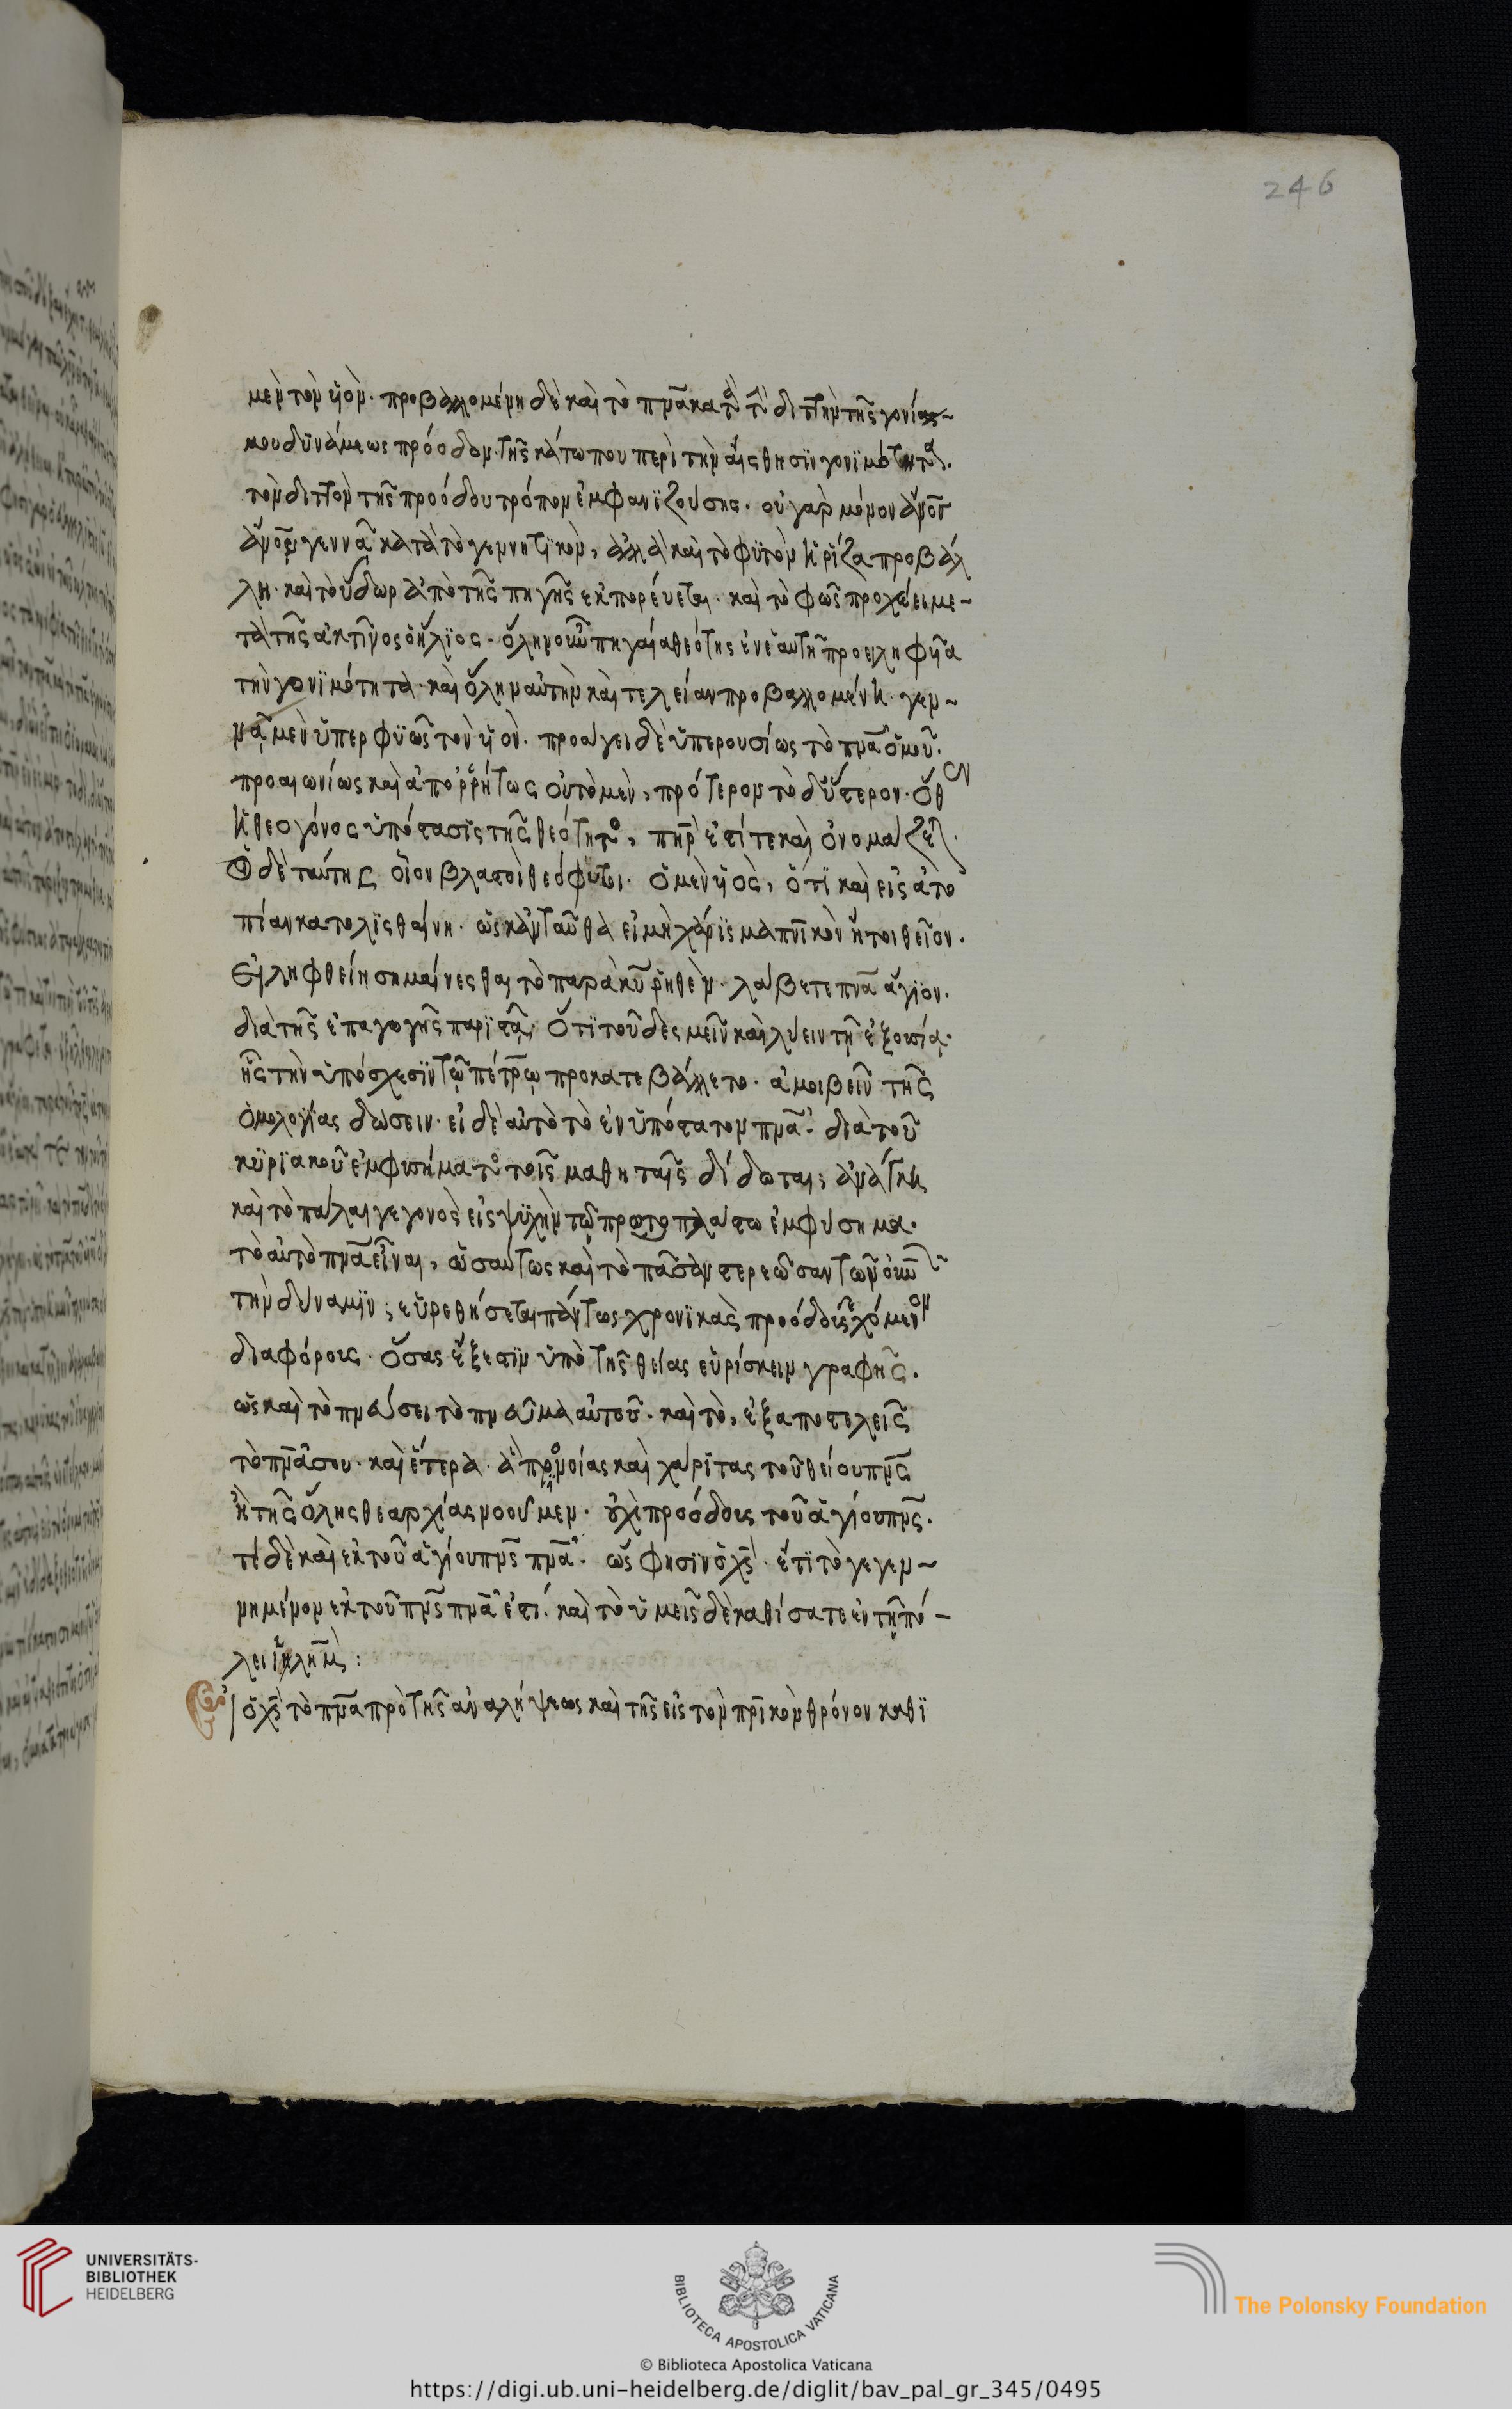 246
μὲν τὸν ὑϊόν. προβαλλομένη δὲ καὶ τὸ πνᾶ κατὰ τὴν διττὴν τῆς γονίμου~
κου δϋνάμεως πρόοδον. τῆς κάτω που περὶ τὴν αἴσθησϊν γονϊμότητος.
τὸν διττὸν τῆς προόδου τρόπον ἐμφανϊζούσης. οὐ γὰρ μόνον ἄνος
ἄνον γεννᾶ κατὰ τὸ γεννητϊκὸν, ἀλλὰ καὶ τὸ φϋτὸν ἡ ῥίζα προβάλ
λη. καὶ τὸ ὕδωρ ἀπὸ τῆς πηγῆς ἐκπορέυεται. καὶ τὸ φῶς προχέει με-
τὰ τῆς ἀκτῖνος ὁ ἥλϊος. ὅλην οὖν ἡ πηγαία θεότης ἐν ἑαυτῆ προειληφῦα
τὴν γονϊμότητα. καὶ ὅλην αὐτὴν καὶ τελείαν προβαλλομένη. γεν~
νᾶ μὲν ὑπερφϋῶς τὸν ὑϊόν. προάγει δὲ ὑπερουσίως τὸ πνᾶ ὁμοῦ.
προαιωνίως καὶ ἀπορρήτως οὐ τὸ μὲν, πρότερον τὸ δὲ ὕστερον. ὅθεν
ἡ θεογόνος ὑπόστασϊς τῆς θεότητος, πηρ ἐστί τε καὶ ὀνομάζεται.
Οἱ δὲ ταύτης οἷον βλαστοὶ θεόφυτοι. ὁ μὲν ὑϊὸς, ὅτϊ καὶ εἰς ἀτο
πίαν κατολϊσθαίνη. ὡς κἀνταῦθα εἰ μὴ χάρϊσμα πνϊκὸν ἤτοι θεῖον.
Εἰληφθείη σημαίνεσθαι τὸ παρὰ κῦ ῥηθὲν. λάβετε πνᾶ ἅγϊον.
διὰ τῆς ἐπαγωγῆς παρϊστᾶ. ὅτϊ τοῦ δεσμεῖν καὶ λύειν τῆ ἐξουσία.
ἧς τὴν ὑπόσχεσϊν τῷ πέτρω προκατεβάλλετο. ἀμοιβεῖν τῆς
ὁμολογίας δώσειν. εἰ δὲ αὐτὸ τὸ ἐνϋπόστατον πνᾶ. διὰ τοῦ
κϋρϊακοῦ ἐμφυσήματος τοῖς μαθηταῖς δίδωται; ἀνάγκη
καὶ τὸ πάλαι γεγονὸς εἰς ψϋχὴν τῶ πρωτοπλάστω ἐμφύσημα.
τὸ αὐτὸ πνᾶ εἶναι, ὡσαύτως καὶ τὸ πᾶσαν στερεῶσαν τῶν οὐνῶν
τὴν δύναμϊν; εὑρεθήσεται πάντως χρονϊκὰς προόδους ἐχόμενον
διαφόρους. ὅσας ἔξεστϊν ὑπὸ τῆς θείας εὑρίσκειν γραφῆς.
ὡς καὶ τὸ πνεύσει τὸ πνεῦμα αὐτοῦ. καὶ τὸ, ἐξαποστελεῖς
τὸ πνᾶ σου. καὶ ἕτερα. ἃ προνοίας καὶ χάρϊτας τοῦ θείου πνς
ἢ τῆς ὅλης θεαρχίας νοοῦμεν. οὐχὶ προόδους τοῦ ἁγίου πνς.
τί δὲ καὶ ἐκ τοῦ ἁγίου πνς πνᾶ. ὥς φησϊν ὁ χς. ἔτϊ τὸ γεγεν~
νημένον ἐκ τοῦ πνς πνᾶ ἐστί. καὶ τὸ ὑμεῖς δὲ καθίσατε ἐν τῆ πό-
λει ἱλημ:
Εἰ ὁ χς τὸ πνᾶ πρὸ τῆς ἀναλήψεως καὶ τῆς εἰς τὸν πρϊκὸν θρόνον καθϊ
UNIVERSITÄTS-
BIBLIOTHEK
HEIDELBERG
BIBLIOTECA APOSTOLICA VATICANA
The Polonsky Foundation
© Biblioteca Apostolica Vaticana
https://digi.ub.uni-heidelberg.de/diglit/bav_pal_gr_345/0495